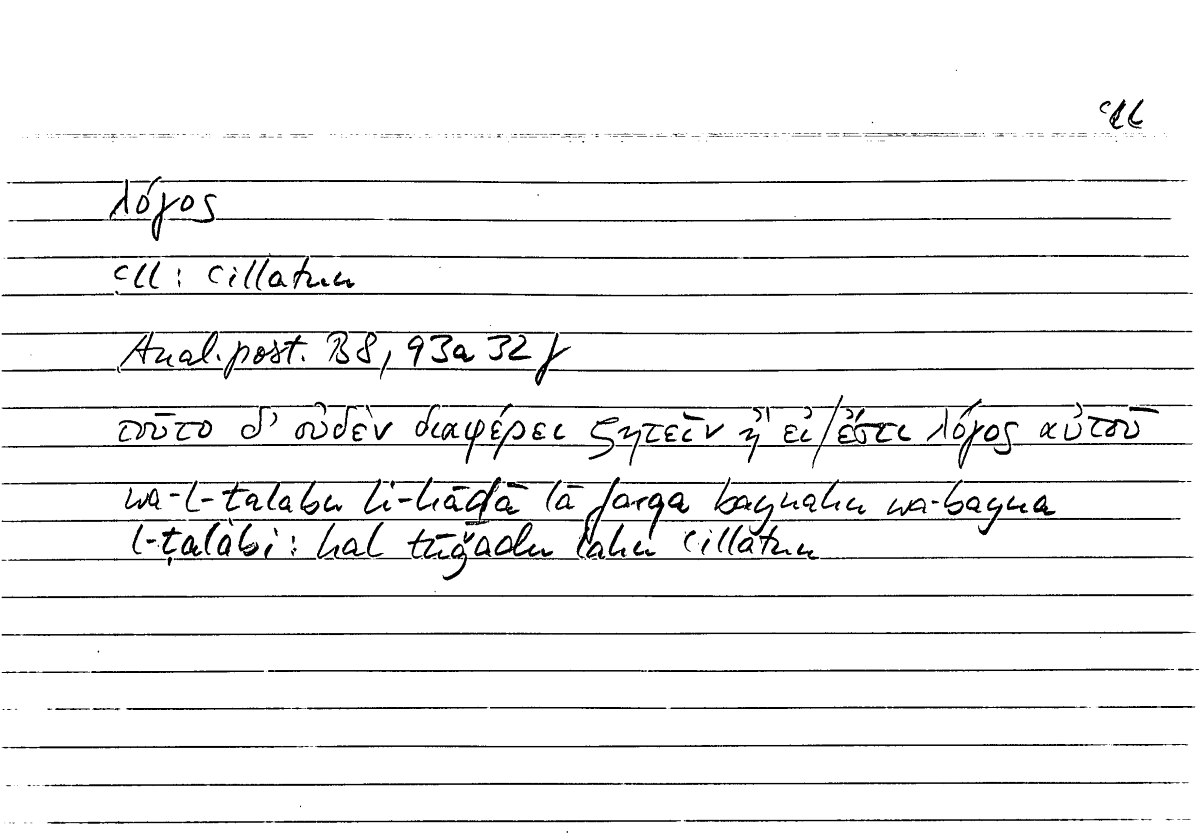 ʿll
λόγος
ʿll : ʿillatun
Anal. post. B8, 93a 32 f
τοῦτο δ' οὐδὲν διαφέρει ζητεῖν ἢ εἰ/ἔστι λόγος αὐτοῦ
wa-l-ṭalabu li-hāḏā lā farqa baynahu wa-bayna
l-ṭalabi : hal tūǧadu lahu ʿillatun